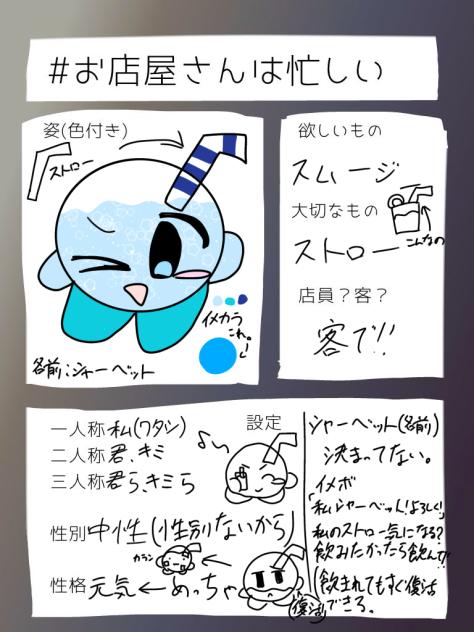 #お店屋さんは忙しい
姿(色付き)
ストロー
イメカラ
これ。
名前:シャーベット
欲しいもの
スムージ
大切なもの
ストロー
こんなの
店員？客？
客で!!
一人称 私(ワタシ)
二人称 君、キミ
三人称 君ら、キミら
設定
性別 中性(性別ないから)
カラン
性格 元気←めっちゃ
(復活)
シャーベット(名前)
決まってない。
イメボ
「私シャーベット!よろしく!」
私のストロー気になる?
飲みたかったら飲んで!!
(飲まれてもすぐ復活
できる。